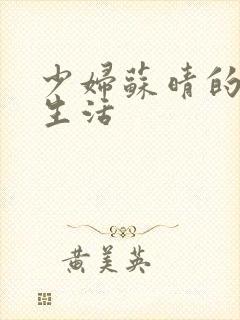 少婦蘇晴的
生活
黄美英